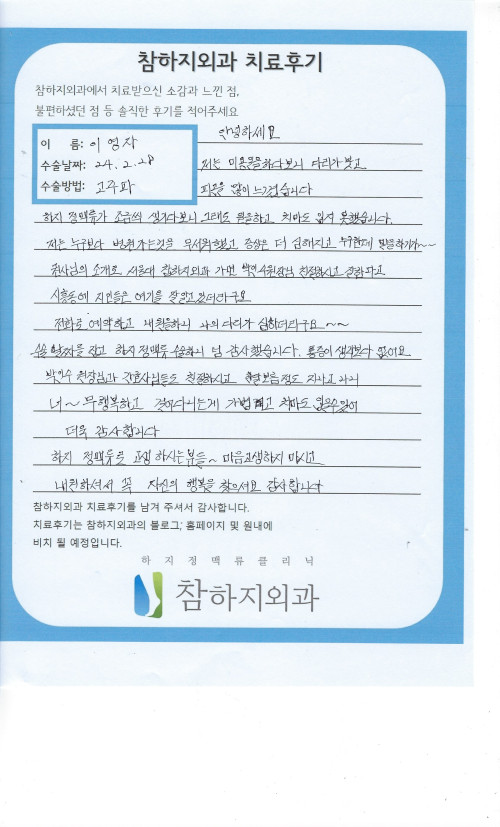 참하지외과 치료후기
참하지외과에서 치료받으신 소감과 느낀 점,
불편하셨던 점 등 솔직한 후기를 적어주세요
이 름: 이영자
수술날짜: 24. 2. 28
수술방법: 고주파
안녕하세요
저는 미용문을하다보니 다리가 붓고
피로를 많이 느꼈습니다
하지 정맥류가 조금씩 생기다보니 그래도 일을하고 치마도 입지 못했습니다.
저는 누구보다 병원가는것을 무서워했고 증상은 더 심해지고 누구한테 말을하기가~~
권사님의 소개로 서울대 참하지외과 가면 박인수원장님 친절하시고
시흥동에 지인들은 여기를 잘 알고 있더라구요
전화로 예약하고 내원을하니 나의 다리가 심하더라구요 ~~
수술날짜를 잡고 하지정맥류 수술하니 넘 감사했습니다. 통증이 생각보다 없어요
박인수 원장님과 간호사님들도 친절하시고 한달보름정도 지나고 나니
너~무 행복하고 걸어다니는게 가볍고 치마도 입을수있어
더욱 감사합니다
하지 정맥류로 고생 하시는분들~ 마음고생하지 마시고
내원하셔서 꼭 자신의 행복을 찾으세요 감사합니다
참하지외과 치료후기를 남겨 주셔서 감사합니다.
치료후기는 참하지외과의 블로그, 홈페이지 및 원내에
비치 될 예정입니다.
하지정맥류클리닉
참하지외과